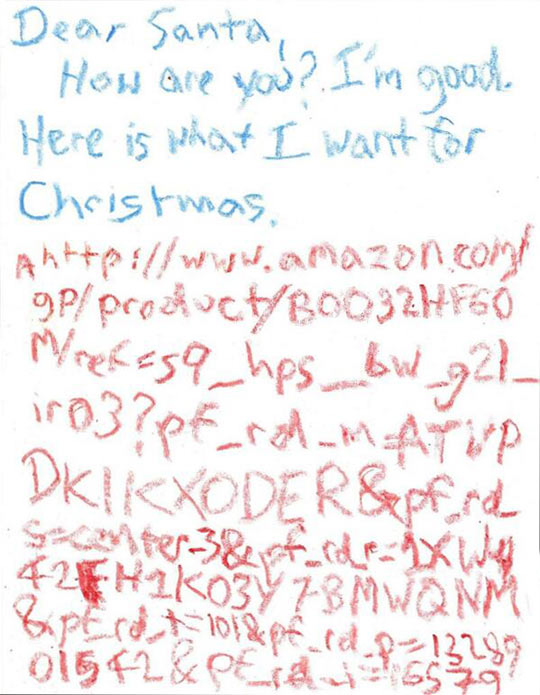 Dear Santa,
How are you? I'm good.
Here is what I want for
Christmas.
A http://www.amazon.com/
gp/product/B0032HF60
M/ref=s9_hps_bw_g21_
ir03?pf_rd_m=ATVP
DKIKX0DER&pf_rd_
s=center-3&pf_rd_r=1XWH
42FH1K03Y7BMWQNM
&pf_rd_t=101&pf_rd_p=13289
01542&pf_rd_i=16579